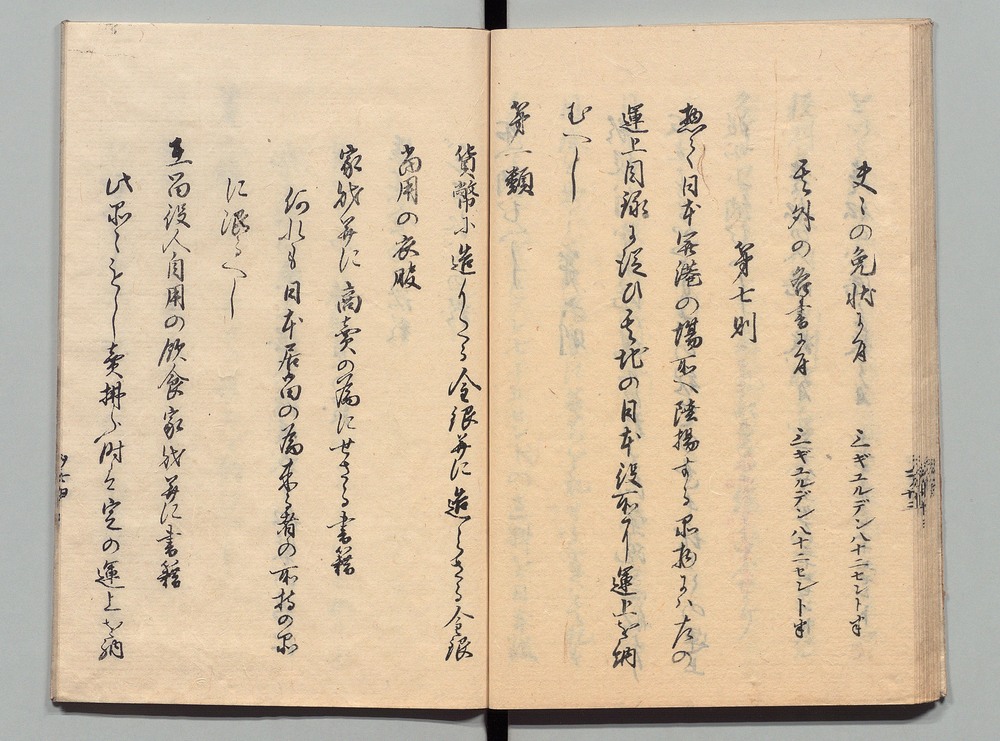 夫々の免状に付　三ギユルデン八十二セント半
其外の各書に付　三ギユルデン八十二セント半
第七則
惣て日本開港の場所へ陸揚する品物にハ左の
運上目録に従ひ其地の日本役所に運上を納
むへし
第一類
貨幣に造りたる金銀並に造らさる金銀
当用の衣服
家財並に商売の為にせさる書籍
何れも日本居留の為来る者の所持の品
に限るへし
在留役人自用の飲食家財並に書籍
此品々をもし売拂ふ時は定の運上を納